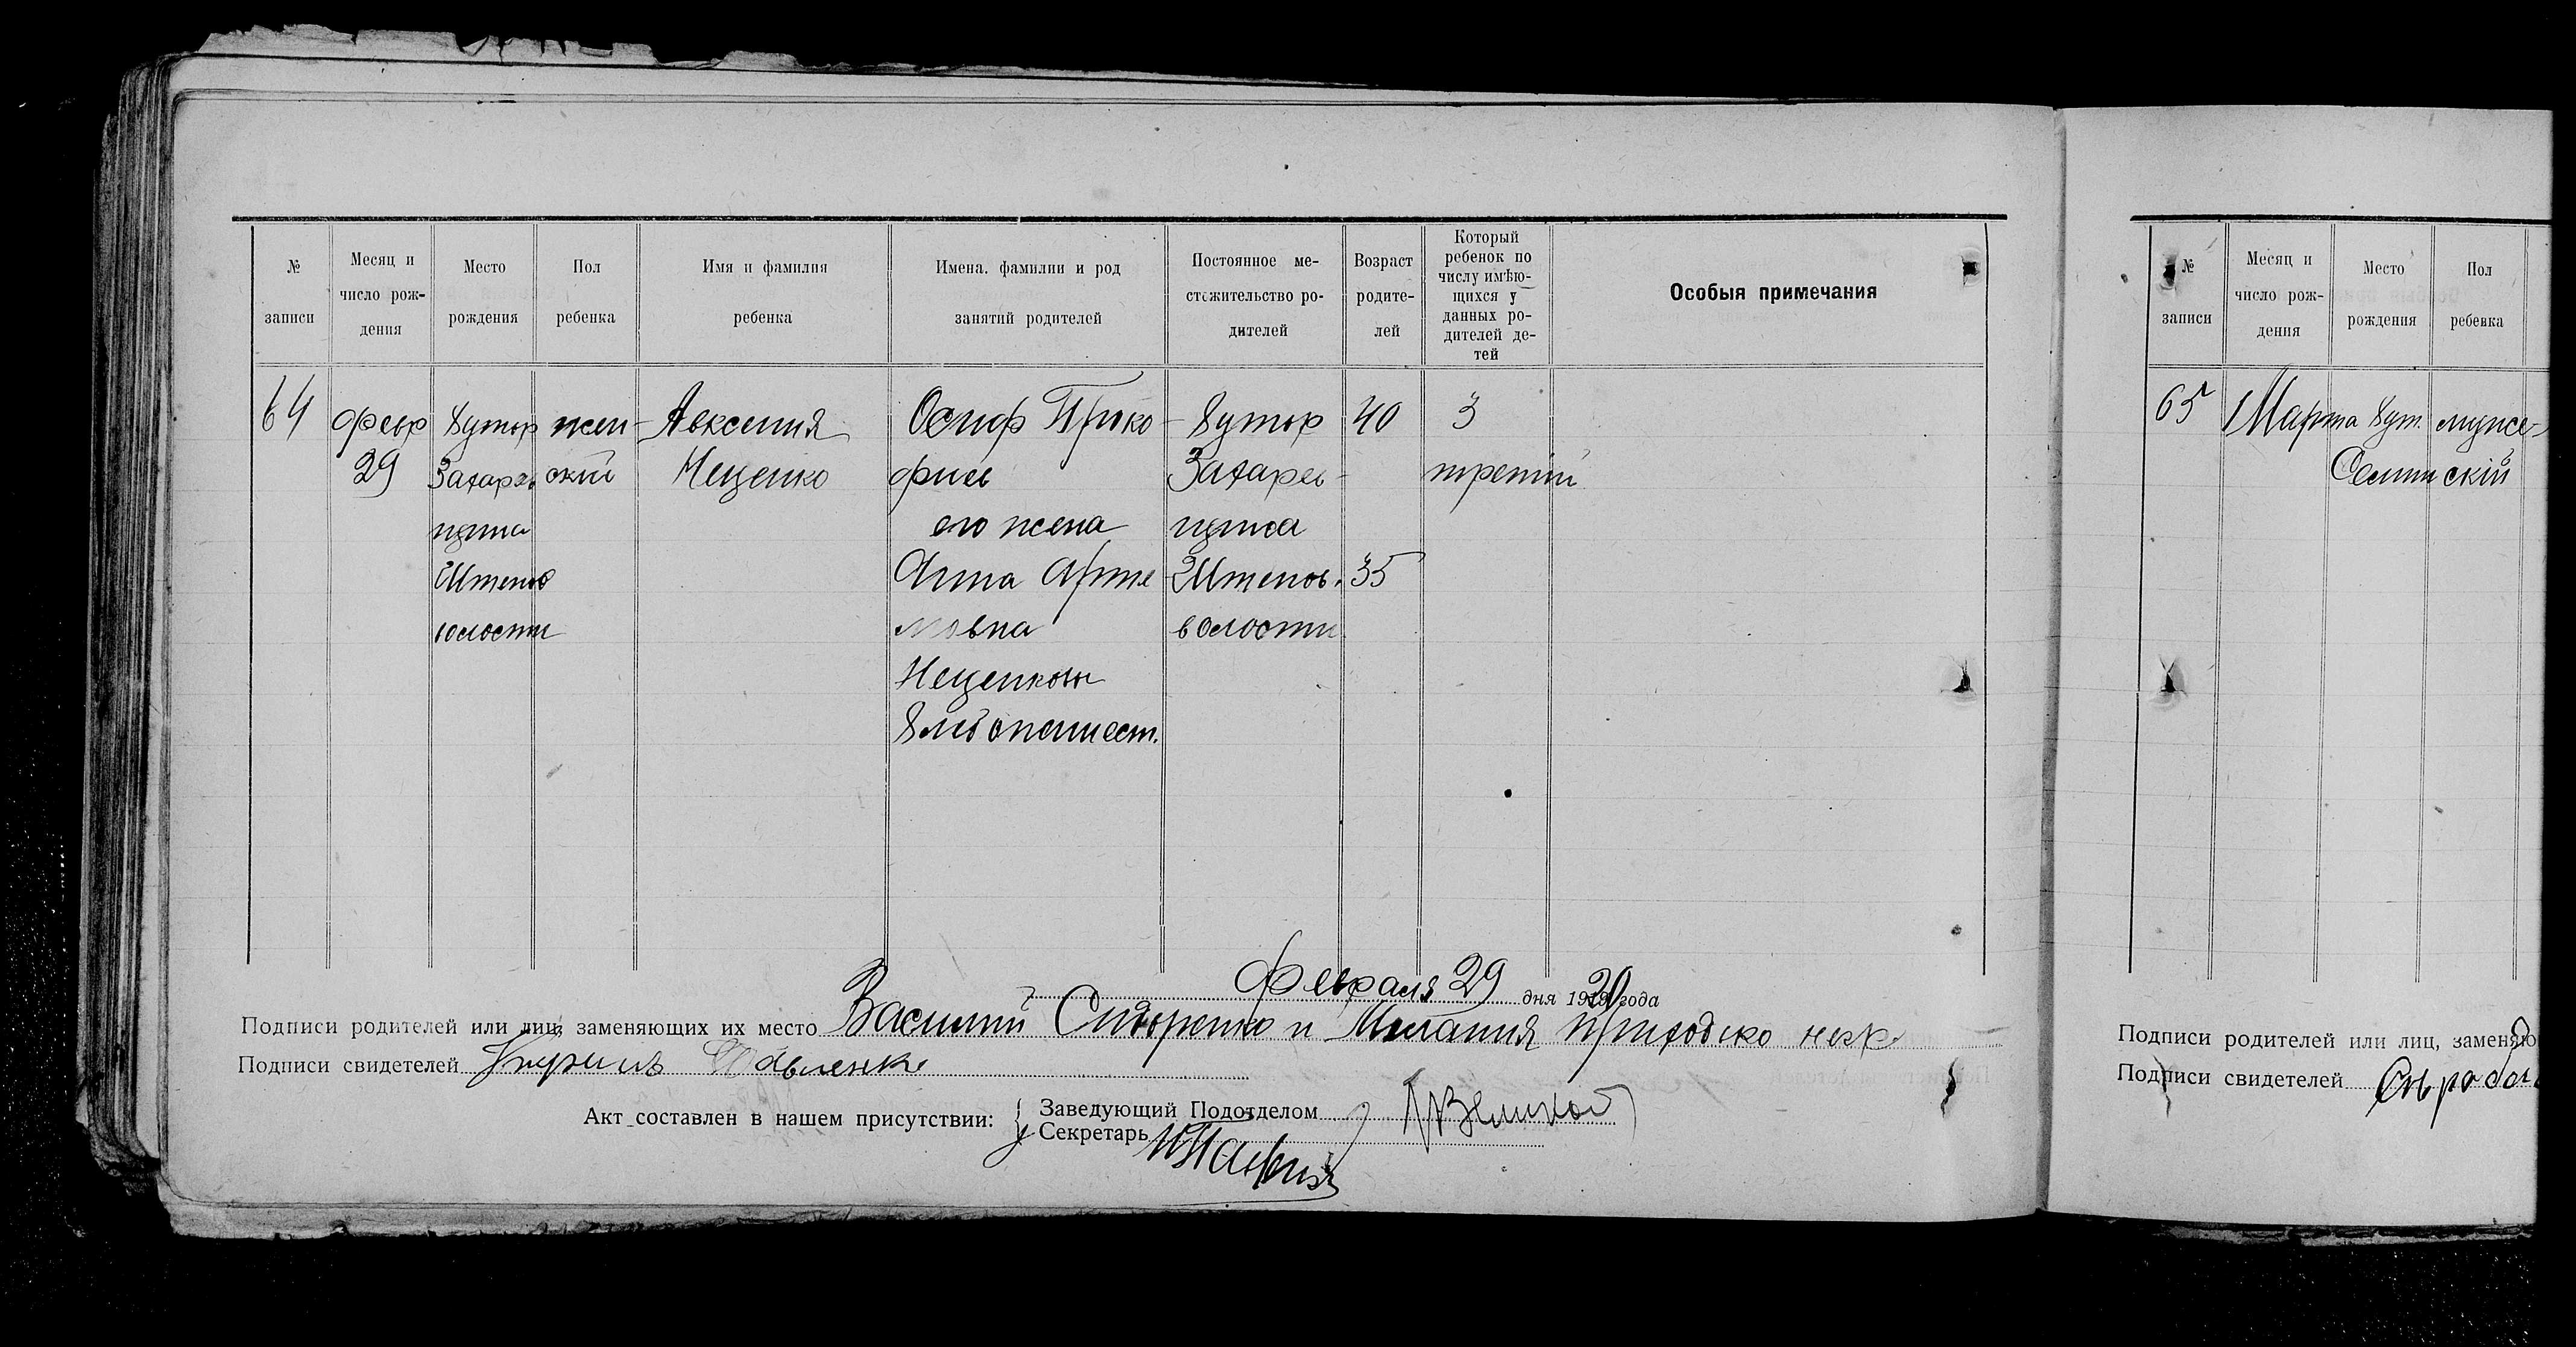 № записи
Месяц и число рождения
Место рождения
Пол ребенка
Имя и фамилия ребенка
Имена, фамилии и род занятий родителей
Постоянное местожительство родителей
Возраст родителей
Который ребенок по числу имѣющихся у данных родителей детей
Особыя примечания
64 февр хутор жен- Авксения Осиф Проко- хутор 40 3
29 ский Неценко фиев третий
его жена
Анна Арте- Штепов. 35
мовна волости
Неценковы
хлебопашест.
Февраля 29 дня 1920 года
Подписи родителей или лиц, заменяющих их место Василий Сидоренко и Мелания Приходько негр.
Подписи свидетелей Кирилъ Павленко
Акт составлен в нашем присутствии:
Заведующий Подотделом
Секретарь
№ записи
Месяц и число рождения
Место рождения
Пол ребенка
65 Марта хут. мужс-
ский
Подписи родителей или лиц, заменяю
Подписи свидетелей